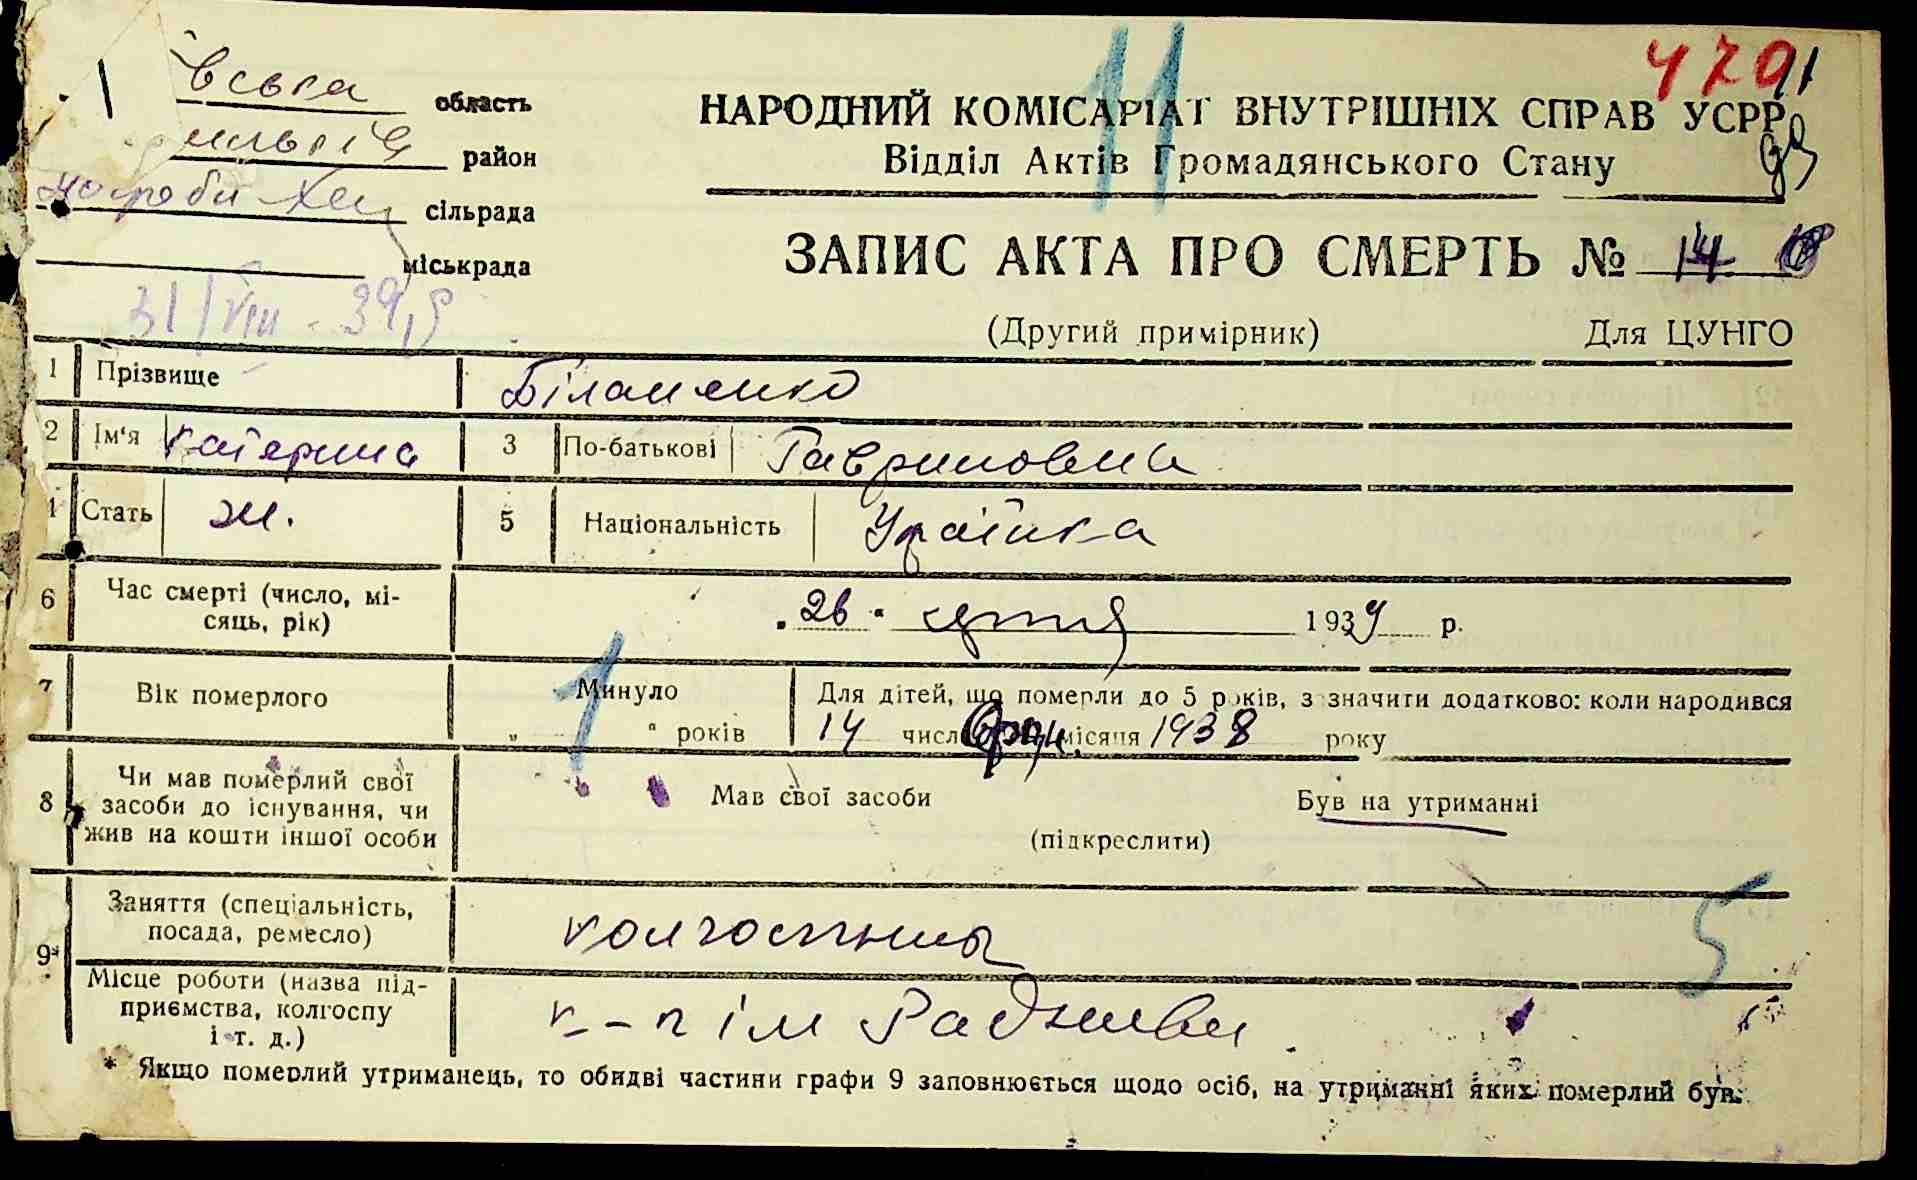 вська область
район
сільрада
міськрада
31/VIII - 39 р
4791
11
НАРОДНИЙ КОМІСАРІАТ ВНУТРІШНІХ СПРАВ УСРР
Відділ Актів Громадянського Стану
ЗАПИС АКТА ПРО СМЕРТЬ № 14
(Другий примірник) Для ЦУНГО
1 Прізвище Біланенко
2 Ім'я Катерина 3 По-батькові Гавриловна
4 Стать ж. 5 Національність Украінка
6 Час смерті (число, мі-
сяць, рік) 26 1939 р.
7 Вік померлого Минуло 1 років
Для дітей, що померли до 5 років, зазначити додатково: коли народився
14 числа місяця 1938 року
8 Чи мав померлий свої
засоби до існування, чи
жив на кошти іншої особи
Мав свої засоби Був на утриманні
(підкреслити)
9* Заняття (спеціальність,
посада, ремесло) колгоспниця
5
Місце роботи (назва під-
приємства, колгоспу
і т. д.)
к-п ім
* Якщо померлий утриманець, то обидві частини графи 9 заповнюється щодо осіб, на утриманні яких померлий був.